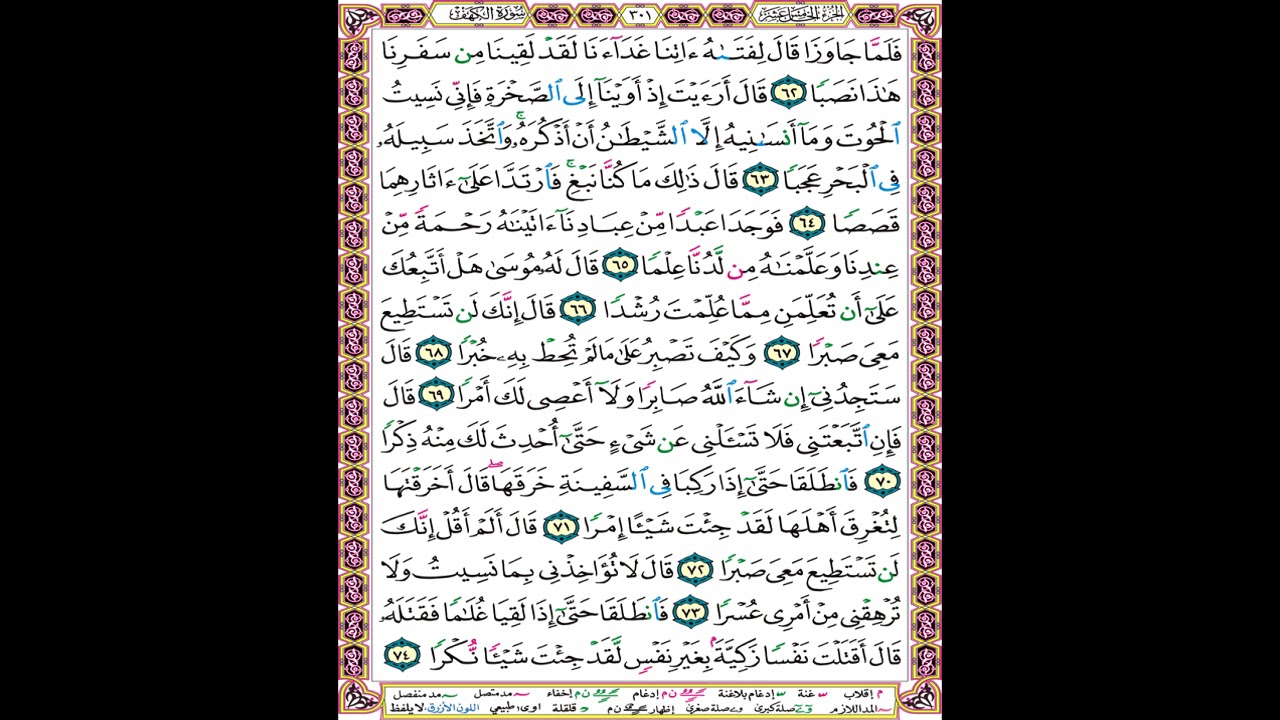 سورة الكهف ٣٠١ الجزء الخامس عشر
فَلَمَّا جَاوَزَا قَالَ لِفَتَىٰهُ ءَاتِنَا غَدَآءَنَا لَقَدْ لَقِينَا مِن سَفَرِنَا
هَٰذَا نَصَبًا ٦٢ قَالَ أَرَءَيْتَ إِذْ أَوَيْنَآ إِلَى ٱلصَّخْرَةِ فَإِنِّى نَسِيتُ
ٱلْحُوتَ وَمَآ أَنسَىٰنِيهُ إِلَّا ٱلشَّيْطَٰنُ أَنْ أَذْكُرَهُۥۚ وَٱتَّخَذَ سَبِيلَهُۥ
فِى ٱلْبَحْرِ عَجَبًا ٦٣ قَالَ ذَٰلِكَ مَا كُنَّا نَبْغِۚ فَٱرْتَدَّا عَلَىٰٓ ءَاثَارِهِمَا
قَصَصًا ٦٤ فَوَجَدَا عَبْدًا مِّنْ عِبَادِنَآ ءَاتَيْنَٰهُ رَحْمَةً مِّنْ
عِندِنَا وَعَلَّمْنَٰهُ مِن لَّدُنَّا عِلْمًا ٦٥ قَالَ لَهُۥ مُوسَىٰ هَلْ أَتَّبِعُكَ
عَلَىٰٓ أَن تُعَلِّمَنِ مِمَّا عُلِّمْتَ رُشْدًا ٦٦ قَالَ إِنَّكَ لَن تَسْتَطِيعَ
مَعِىَ صَبْرًا ٦٧ وَكَيْفَ تَصْبِرُ عَلَىٰ مَا لَمْ تُحِطْ بِهِۦ خُبْرًا ٦٨ قَالَ
سَتَجِدُنِىٓ إِن شَآءَ ٱللَّهُ صَابِرًا وَلَآ أَعْصِى لَكَ أَمْرًا ٦٩ قَالَ
فَإِنِ ٱتَّبَعْتَنِى فَلَا تَسْـَٔلْنِى عَن شَىْءٍ حَتَّىٰٓ أُحْدِثَ لَكَ مِنْهُ ذِكْرًا
٧٠ فَٱنطَلَقَا حَتَّىٰٓ إِذَا رَكِبَا فِى ٱلسَّفِينَةِ خَرَقَهَاۖ قَالَ أَخَرَقْتَهَا
لِتُغْرِقَ أَهْلَهَا لَقَدْ جِئْتَ شَيْـًٔا إِمْرًا ٧١ قَالَ أَلَمْ أَقُلْ إِنَّكَ
لَن تَسْتَطِيعَ مَعِىَ صَبْرًا ٧٢ قَالَ لَا تُؤَاخِذْنِى بِمَا نَسِيتُ وَلَا
تُرْهِقْنِى مِنْ أَمْرِى عُسْرًا ٧٣ فَٱنطَلَقَا حَتَّىٰٓ إِذَا لَقِيَا غُلَٰمًا فَقَتَلَهُۥ
قَالَ أَقَتَلْتَ نَفْسًا زَكِيَّةًۢ بِغَيْرِ نَفْسٍ لَّقَدْ جِئْتَ شَيْـًٔا نُّكْرًا ٧٤
م إقلاب غنة إدغام بلاغنة ن م إدغام ن م إخفاء مد متصل مد منفصل
المد اللازم صلة كبرى صلة صغرى إظهار ن م قلقلة اوى: طبيعي اللون الأزرق: لا يلفظ